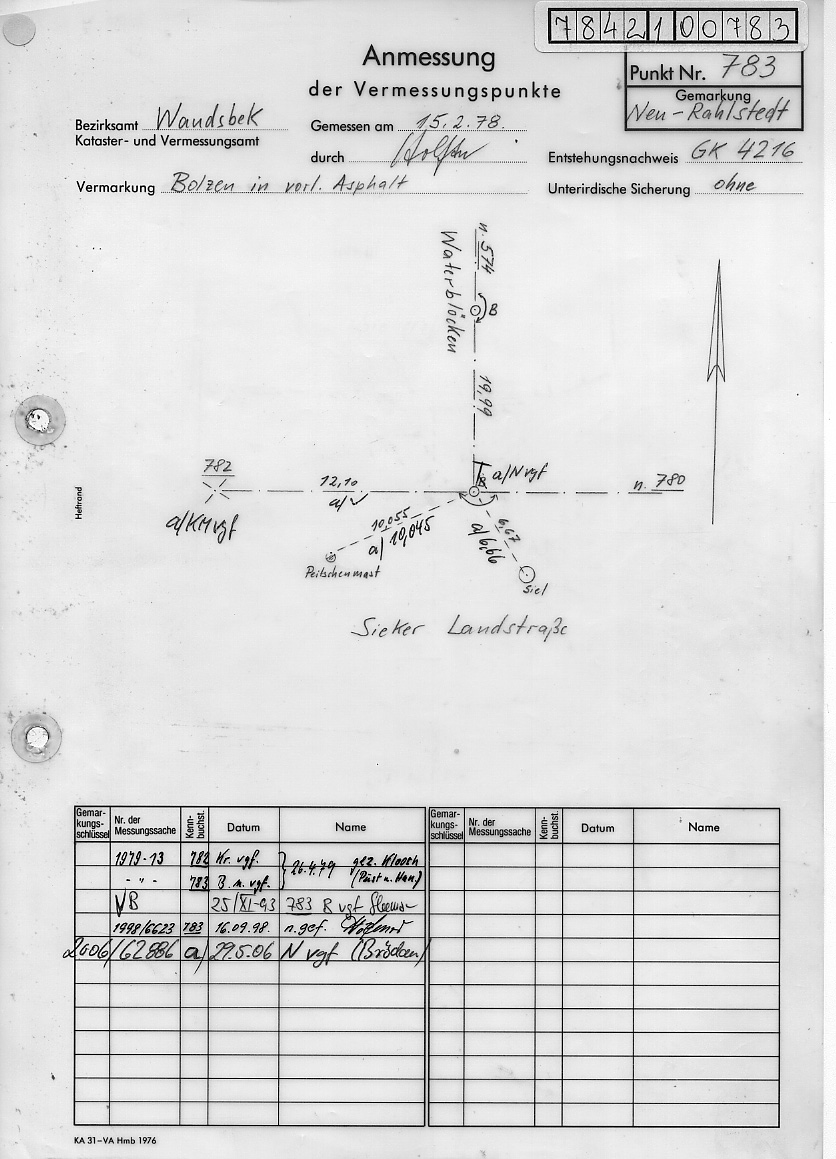 7842100783
Anmessung
der Vermessungspunkte
Punkt Nr. 783
Gemarkung
Neu-Rahlstedt
Bezirksamt Wandsbek
Kataster- und Vermessungsamt
Gemessen am 15.2.78
durch
Entstehungsnachweis GK 4216
Vermarkung Bolzen in vorl. Asphalt
Unterirdische Sicherung ohne
n. 574
Waterblöcken
B
19,99
782
12,10
a/✓
a/N vgf
B
n. 780
a/KM vgf
10,055
a/ 10,045
6,67
a/6,66
Peitschenmast
Siel
Sieker Landstraße
Heftrand
Gemar-kungs-schlüssel Nr. der Messungssache Kenn-buchst. Datum Name Gemar-kungs-schlüssel Nr. der Messungssache Kenn-buchst. Datum Name
1979-13 782 Kr. vgf. } 26.4.79 gez.
- " - 783 B. n. vgf.
VB 25/XI-93 783 B vgf
1998/6623 783 16.09.98. n. gef.
2006/62886 a/ 29.5.06 N vgf
KA 31–VA Hmb 1976